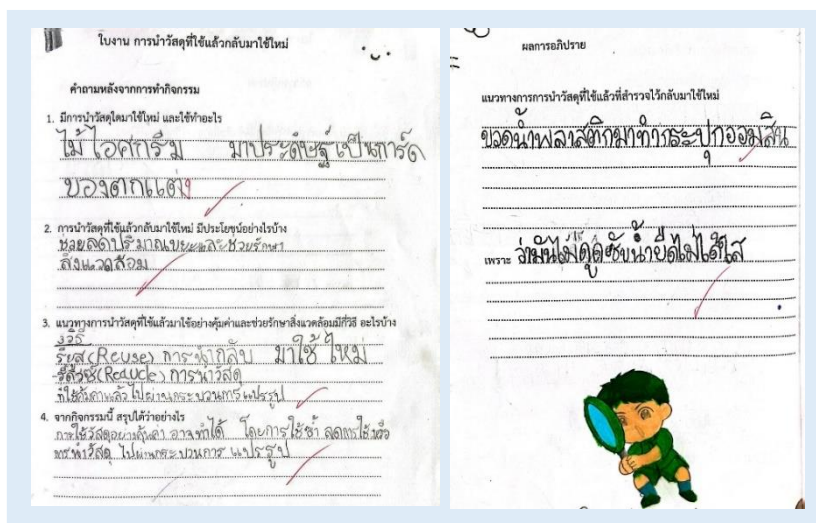 ใบงาน การนำวัสดุที่ใช้แล้วกลับมาใช้ใหม่
คำถามหลังจากการทำกิจกรรม
1. มีการนำวัสดุใดมาใช้ใหม่ และใช้ทำอะไร
ไม้ไอศกรีม มาประดิษฐ์เป็นการ์ด
ของตกแต่ง
2. การนำวัสดุที่ใช้แล้วกลับมาใช้ใหม่ มีประโยชน์อย่างไรบ้าง
ช่วยลดปริมาณขยะและช่วยรักษา
สิ่งแวดล้อม
3. แนวทางการนำวัสดุที่ใช้แล้วมาใช้อย่างคุ้มค่าและช่วยรักษาสิ่งแวดล้อมมีกี่วิธี อะไรบ้าง
3วิธี
รียูส(Reuse) การนำกลับ มาใช้ ใหม่
รีดิวซ์(Reducle) การนำวัสดุ
ที่ใช้แล้วไปผ่านกระบวนการแปรรูป
4. จากกิจกรรมนี้ สรุปได้ว่าอย่างไร
การใช้วัสดุอย่างคุ้มค่า อาจทำได้ โดยการใช้ซ้ำ ลดการใช้หรือ
การนำวัสดุ ไปผ่านกระบวนการ แปรรูป
ผลการอภิปราย
แนวทางการการนำวัสดุที่ใช้แล้วที่สำรวจไว้กลับมาใช้ใหม่
ขวดน้ำพลาสติกมาทำกระปุกออมสิน
เพราะ ว่ามันไม่ดูดซับน้ำยืดไม่ได้ใส